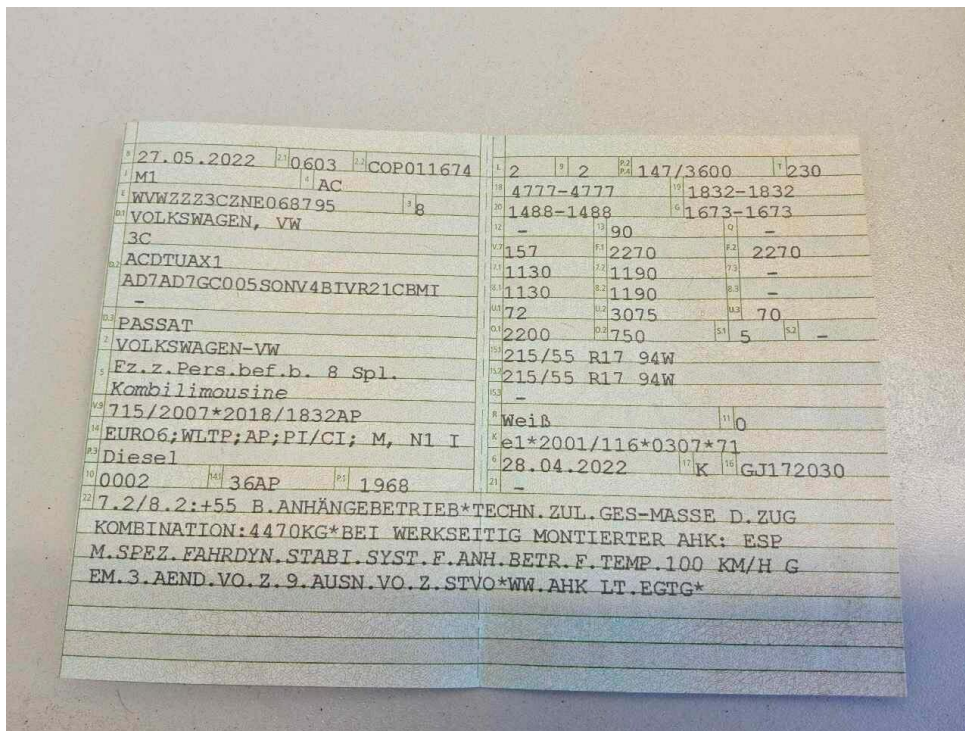 B 27.05.2022 2.1 0603 2.2 COP011674
J M1 4 AC
E WVWZZZ3CZNE068795 3 8
D.1 VOLKSWAGEN, VW
3C
D.2 ACDTUAX1
AD7AD7GC005SONV4BIVR21CBMI
-
D.3 PASSAT
2 VOLKSWAGEN-VW
5 Fz.z.Pers.bef.b. 8 Spl.
Kombilimousine
V.9 715/2007*2018/1832AP
14 EURO6;WLTP;AP;PI/CI; M, N1 I
P.3 Diesel
10 0002 14.1 36AP P.1 1968
L 2 9 2 P.2 P.4 147/3600 T 230
18 4777-4777 19 1832-1832
20 1488-1488 G 1673-1673
12 - 13 90 Q -
V.7 157 F.1 2270 F.2 2270
7.1 1130 7.2 1190 7.3 -
8.1 1130 8.2 1190 8.3 -
U.1 72 U.2 3075 U.3 70
O.1 2200 O.2 750 S.1 5 S.2 -
15.1 215/55 R17 94W
15.2 215/55 R17 94W
15.3 -
R Weiß 11 0
K e1*2001/116*0307*71
6 28.04.2022 17 K 16 GJ172030
21 -
22 7.2/8.2:+55 B.ANHÄNGEBETRIEB*TECHN.ZUL.GES-MASSE D.ZUG
KOMBINATION:4470KG*BEI WERKSEITIG MONTIERTER AHK: ESP
M.SPEZ.FAHRDYN.STABI.SYST.F.ANH.BETR.F.TEMP.100 KM/H G
EM.3.AEND.VO.Z.9.AUSN.VO.Z.STVO*WW.AHK LT.EGTG*